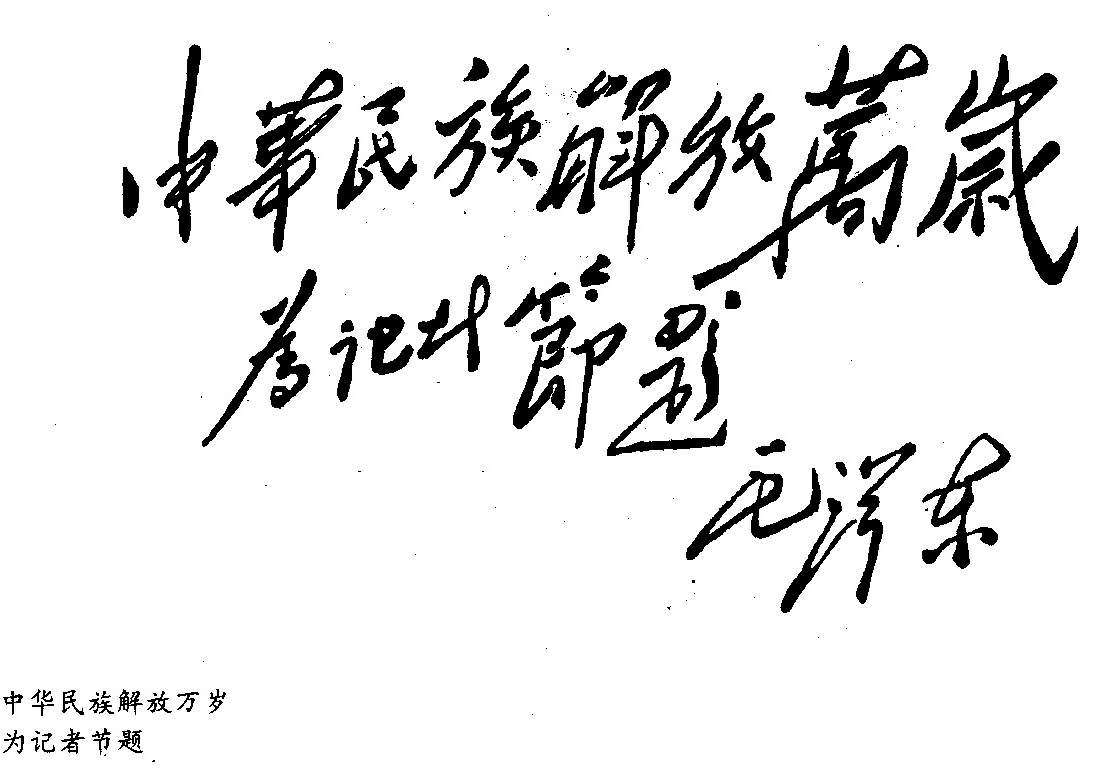 中華民族解放萬歲
為记者節題
毛泽东
中华民族解放万岁
为记者节题